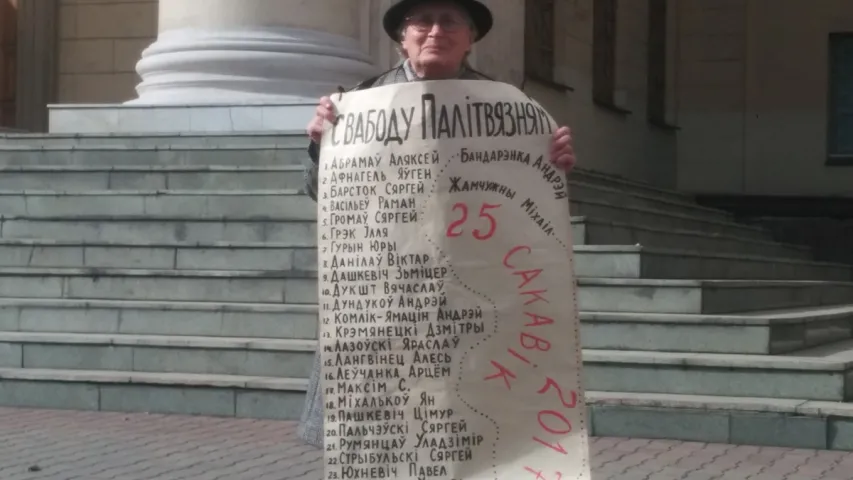 СВАБОДУ ПАЛІТВЯЗНЯМ
1. АБРАМАЎ АЛЯКСЕЙ
2. АФНАГЕЛЬ ЯЎГЕН
3. БАРСТОК СЯРГЕЙ
4. ВАСІЛЬЕЎ РАМАН
5. ГРОМАЎ СЯРГЕЙ
6. ГРЭК ІЛЛЯ
7. ГУРЫН ЮРЫ
8. ДАНІЛАЎ ВІКТАР
9. ДАШКЕВІЧ ЗЬМІЦЕР
10. ДУКШТ ВЯЧАСЛАЎ
11. ДУНДУКОЎ АНДРЭЙ
12. КОМЛІК-ЯМАЦІН АНДРЭЙ
13. КРЭМЯНЕЦКІ ДЗМІТРЫ
14. ЛАЗОЎСКІ ЯРАСЛАЎ
15. ЛАНГВІНЕЦ АЛЕСЬ
16. ЛЕЎЧАНКА АРЦЁМ
17. МАКСІМ С.
18. МІХАЛЬКОЎ ЯН
19. ПАШКЕВІЧ ЦІМУР
20. ПАЛЬЧЭЎСКІ СЯРГЕЙ
21. РУМЯНЦАЎ УЛАДЗІМІР
22. СТРЫБУЛЬСКІ СЯРГЕЙ
23. ЮХНЕВІЧ ПАВЕЛ
БАНДАРЭНКА АНДРЭЙ
ЖАМЧУЖНЫ МІХАІЛ
25 САКАВІК 2017